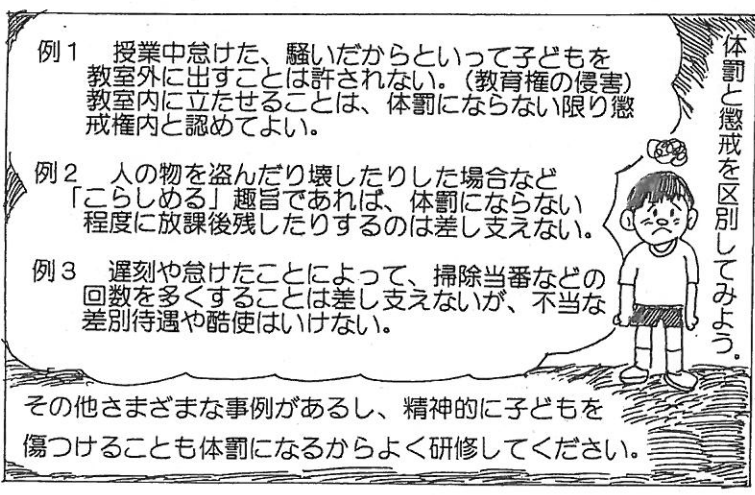 体罰と懲戒を区別してみよう。
例1　授業中怠けた、騒いだからといって子どもを
教室外に出すことは許されない。（教育権の侵害）
教室内に立たせることは、体罰にならない限り懲
戒権内と認めてよい。
例2　人の物を盗んだり壊したりした場合など
「こらしめる」趣旨であれば、体罰にならない
程度に放課後残したりするのは差し支えない。
例3　遅刻や怠けたことによって、掃除当番などの
回数を多くすることは差し支えないが、不当な
差別待遇や酷使はいけない。
その他さまざまな事例があるし、精神的に子どもを
傷つけることも体罰になるからよく研修してください。